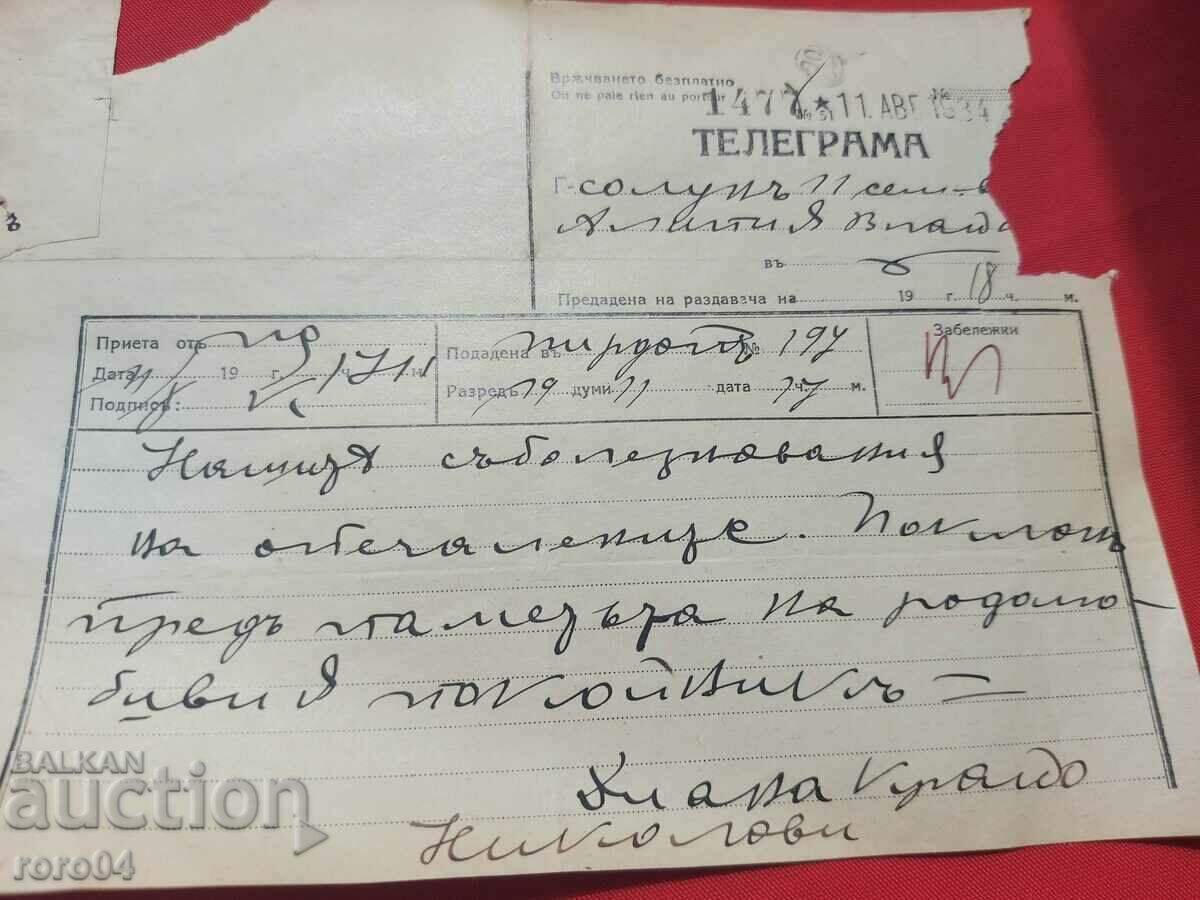 Врѫчването безплатно
On ne paie rien au porteur
1477 * 11. АВГ 1934
№ 51
№
ТЕЛЕГРАМА
Г-Солунъ 11 сем-во
въ
Предадена на раздавача на 19 г. 18 ч. м.
Приета отъ
Дата 19 г. ч. м
Подписъ:
Подадена въ Пирдопъ № 197
Разредъ 19 думи 11 дата 17 ч. м.
Забележки
Нашитѣ съболезнования
на опечалените. Поклонъ
предъ паметьта на родолю-
бивия покойникъ =
Диана Крайо
Николови
ъ
BALKAN
auction
roro04